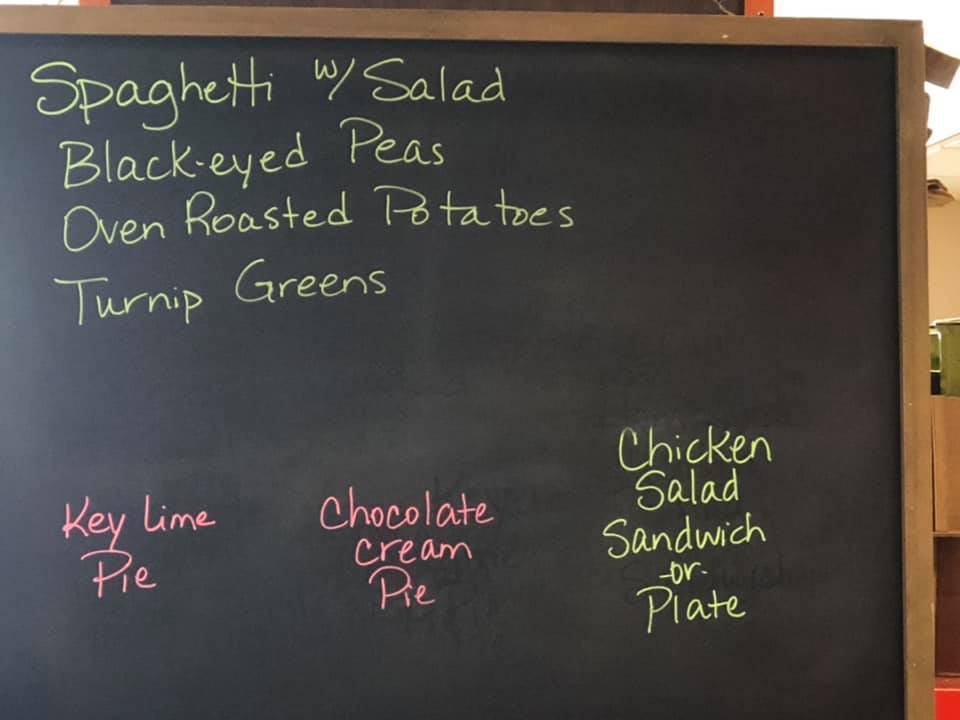 Spaghetti w/ Salad
Black-eyed Peas
Oven Roasted Potatoes
Turnip Greens
Key Lime
Pie
Chocolate
cream
Pie
Chicken
Salad
Sandwich
-or-
Plate